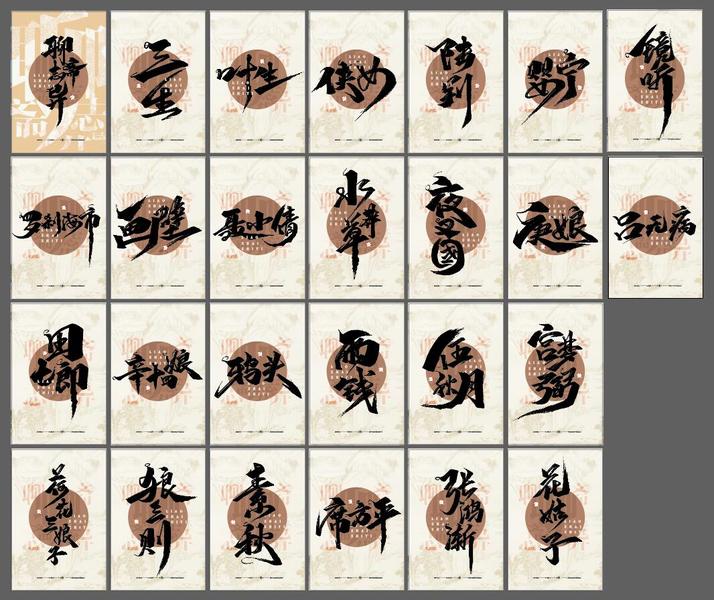 聊斋志异
三生
叶生
侠女
陆判
婴宁
镜听
罗刹海市
画壁
聂小倩
水莽草
夜叉国
庚娘
吕无病
田七郎
辛十四娘
鸦头
雨钱
伍秋月
宫梦弼
荷花三娘子
狼三则
素秋
席方平
张鸿渐
花姑子